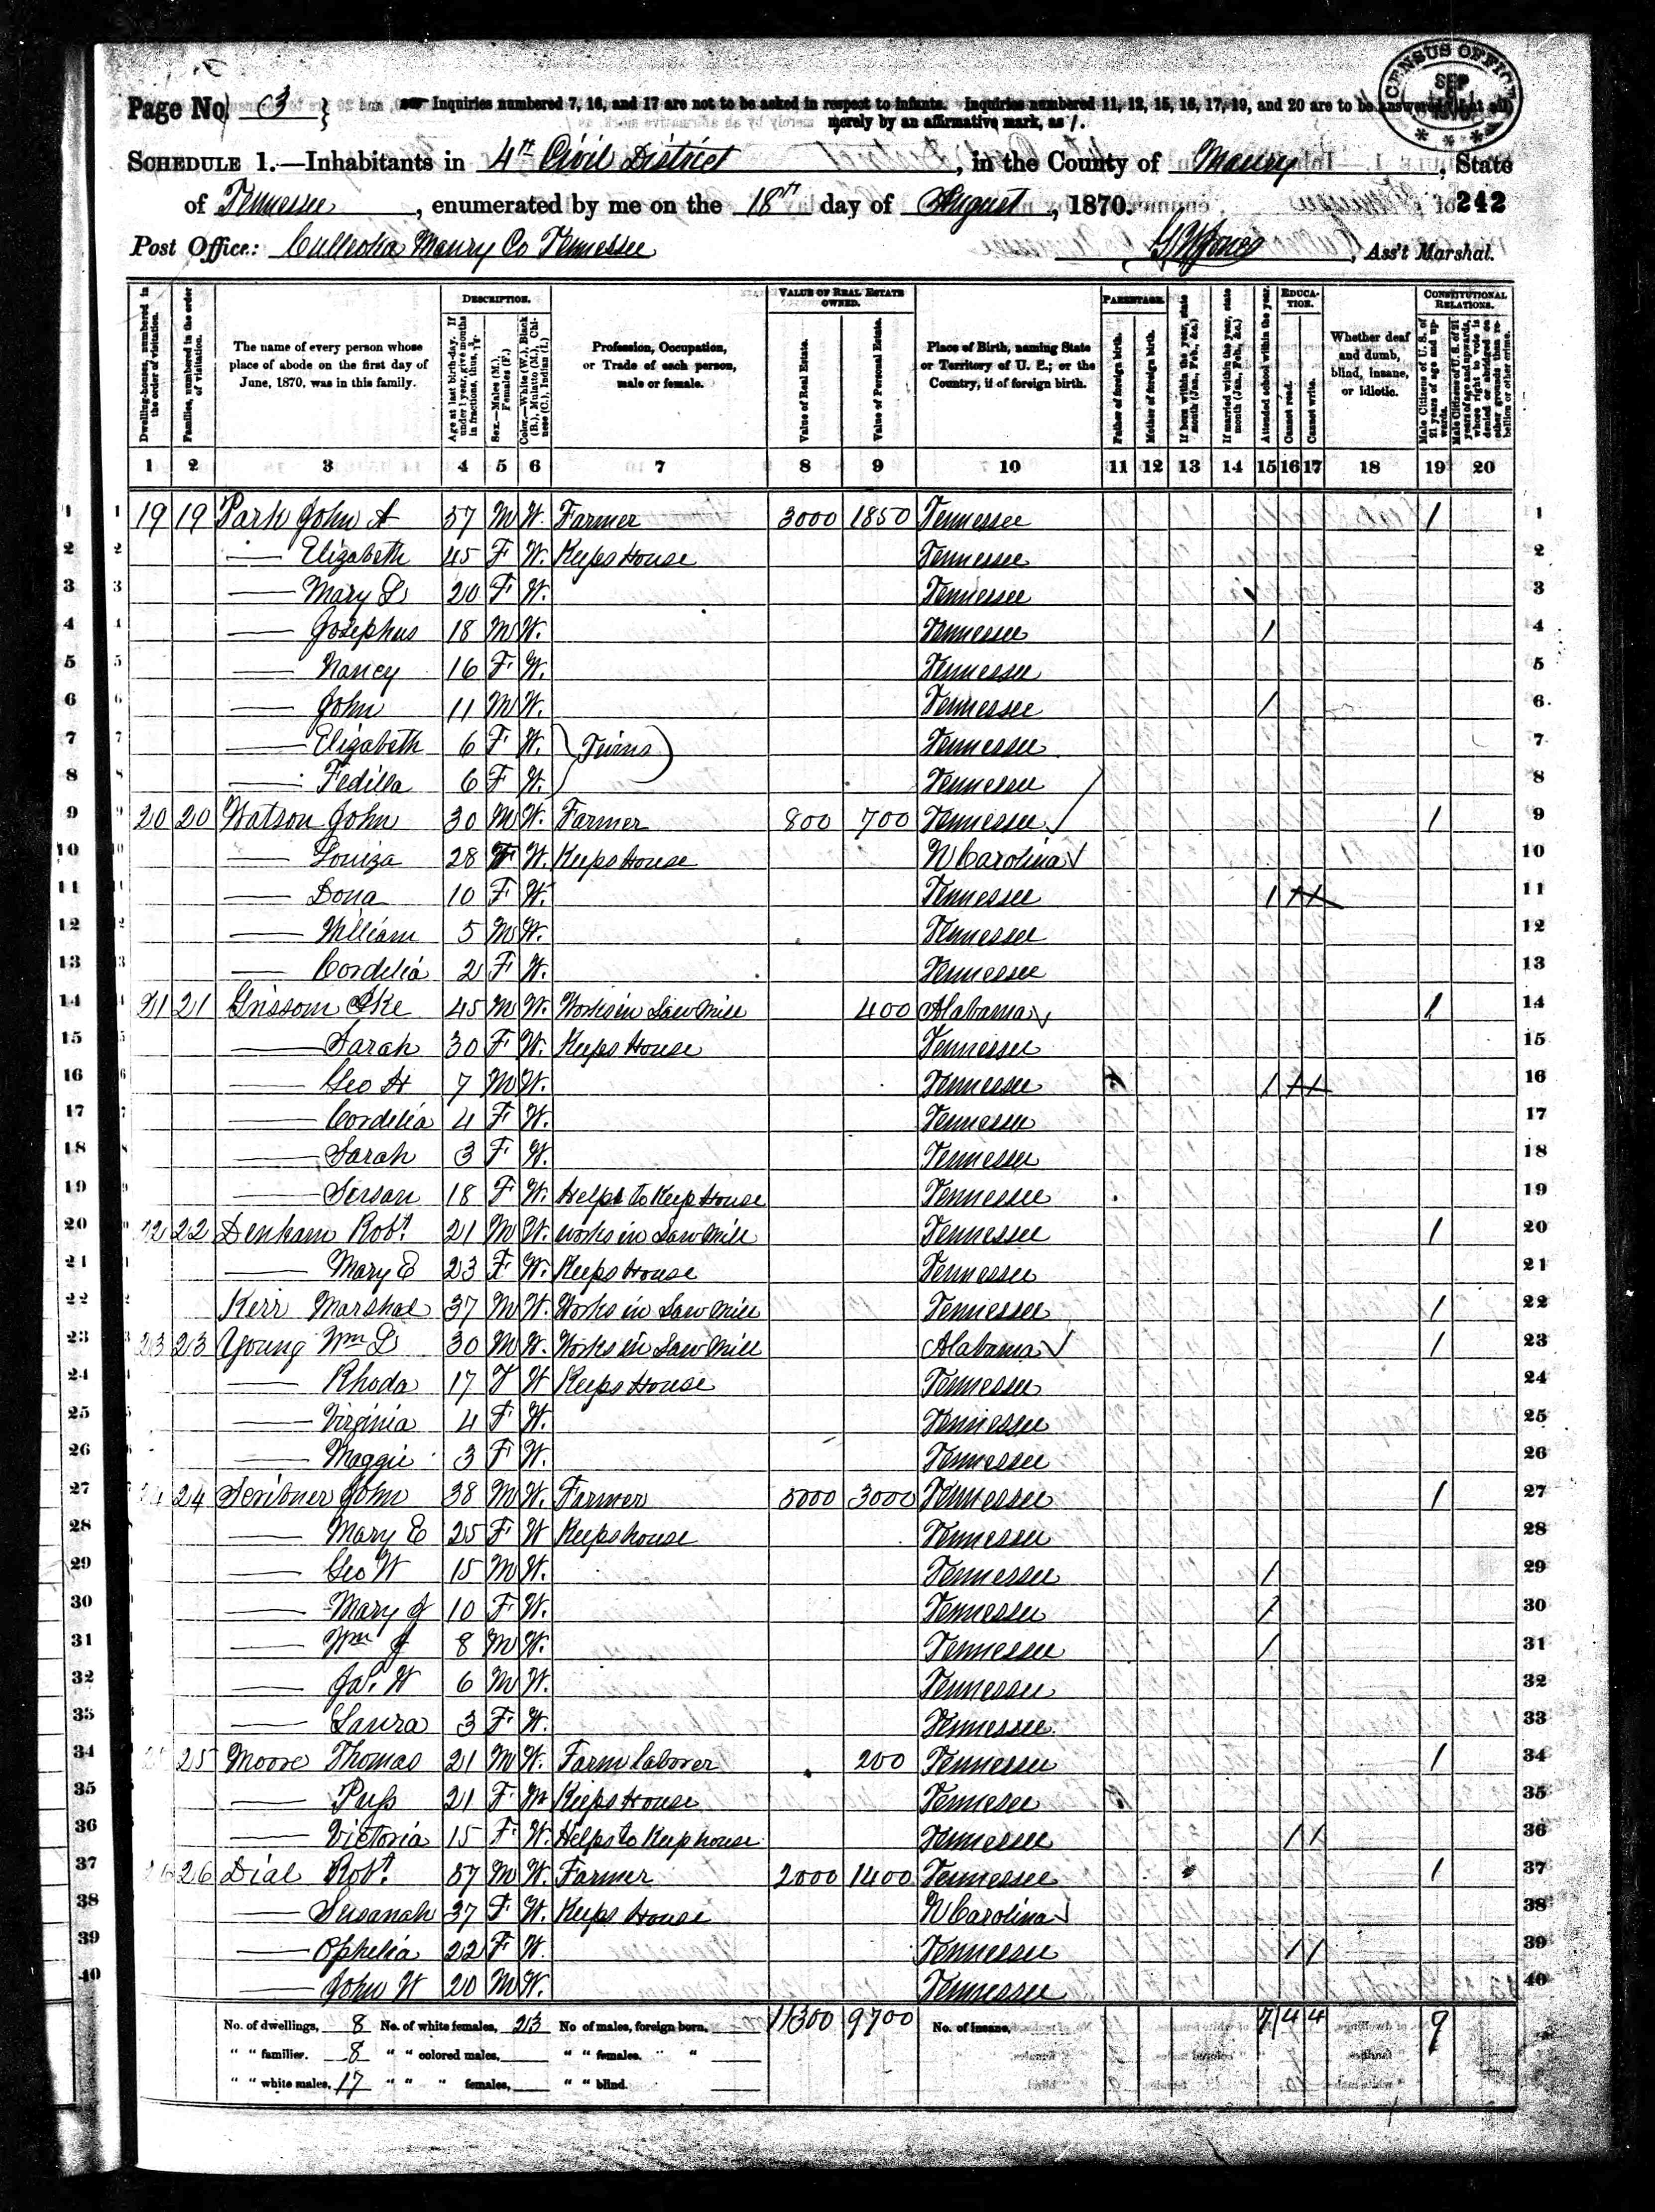 CENSUS OFFICE
SEP
1870
Page No. 3 } Inquiries numbered 7, 16, and 17 are not to be asked in respect to infants. Inquiries numbered 11, 12, 15, 16, 17, 19, and 20 are to be answered (if at all)
merely by an affirmative mark, as /.
SCHEDULE 1.—Inhabitants in 4th Civil District, in the County of Maury, State
of Tennessee, enumerated by me on the 18th day of August, 1870. 242
Post Office: Culleoka Maury Co Tennessee Jones, Ass't Marshal.
Dwelling-houses, numbered in the order of visitation.
Families, numbered in the order of visitation.
The name of every person whose place of abode on the first day of June, 1870, was in this family.
DESCRIPTION.
Age at last birth-day. If under 1 year, give months in fractions, thus, 3/12
Sex.—Males (M.), Females (F.)
Color.—White (W.), Black (B.), Mulatto (M.), Chinese (C.), Indian (I.)
Profession, Occupation, or Trade of each person, male or female.
VALUE OF REAL ESTATE OWNED.
Value of Real Estate.
Value of Personal Estate.
Place of Birth, naming State or Territory of U. S.; or the Country, if of foreign birth.
PARENTAGE.
Father of foreign birth.
Mother of foreign birth.
If born within the year, state month (Jan., Feb., &c.)
If married within the year, state month (Jan., Feb., &c.)
Attended school within the year.
EDUCATION.
Cannot read.
Cannot write.
Whether deaf and dumb, blind, insane, or idiotic.
CONSTITUTIONAL RELATIONS.
Male Citizens of U. S. of 21 years of age and upwards.
Male Citizens of U. S. of 21 years of age and upwards, whose right to vote is denied or abridged on other grounds than rebellion or other crime.
1 2 3 4 5 6 7 8 9 10 11 12 13 14 15 16 17 18 19 20
1 1 19 19 Park John A 57 M W. Farmer 3000 1850 Tennessee 1 1
2 2 — Elizabeth 45 F W. Keeps House Tennessee 2
3 3 — Mary L 20 F W. Tennessee 3
4 4 — Josephus 18 M W. Tennessee 1 4
5 5 — Nancy 16 F W. Tennessee 5
6 6 — John 11 M W. Tennessee 1 6
7 7 — Elizabeth 6 F W. } Twins ) Tennessee 7
8 8 — Fedilla 6 F W. Tennessee 8
9 9 20 20 Watson John 30 M W. Farmer 800 700 Tennessee 1 9
10 10 — Louiza 28 F W. Keeps House N Carolina 10
11 11 — Dona 10 F W. Tennessee 1 1 1 11
12 12 — William 5 M W. Tennessee 12
13 13 — Cordelia 2 F W. Tennessee 13
14 21 21 Grissom Ike 45 M W. Works in Saw Mill 400 Alabama 1 14
15 — Sarah 30 F W. Keeps House Tennessee 15
16 — Geo H 7 M W. Tennessee 1 1 1 16
17 — Cordelia 4 F W. Tennessee 17
18 — Sarah 3 F W. Tennessee 18
19 — Susan 18 F W. Helps to Keep House Tennessee 19
20 22 22 Denham Robt. 21 M W. works in Saw Mill Tennessee 1 20
21 — Mary E 23 F W. Keeps House Tennessee 21
22 Kerr Marshal 37 M W. Works in Saw Mill Tennessee 1 22
23 23 23 Young Wm L 30 M W. Works in Saw Mill Alabama 1 23
24 — Rhoda 17 F W Keeps House Tennessee 24
25 — Virginia 4 F W. Tennessee 25
26 — Maggie 3 F W. Tennessee 26
27 24 24 Scribner John 38 M W. Farmer 5000 3000 Tennessee 1 27
28 — Mary E 25 F W Keeps house Tennessee 28
29 — Geo W 15 M W. Tennessee 1 29
30 — Mary J 10 F W. Tennessee 1 30
31 — Wm J 8 M W. Tennessee 1 31
32 — Jas. W 6 M W. Tennessee 32
33 — Laura 3 F W. Tennessee 33
34 25 25 Moore Thomas 21 M W. Farm laborer 200 Tennessee 1 34
35 — Puss 21 F W Keeps House Tennessee 35
36 — Victoria 15 F W. Helps to Keep house Tennessee 1 1 36
37 26 26 Dial Robt. 57 M W. Farmer 2000 1400 Tennessee 1 37
38 — Susanah 37 F W. Keeps House N Carolina 38
39 — Ophelia 22 F W. Tennessee 1 1 39
40 — John W 20 M W. Tennessee 40
No. of dwellings, 8 No. of white females, 23 No of males, foreign born, 11300 9700 No. of insane, 7 4 4 9
" " families. 8 " " colored males, " " females. " "
" " white males, 17 " " " females, " " blind.